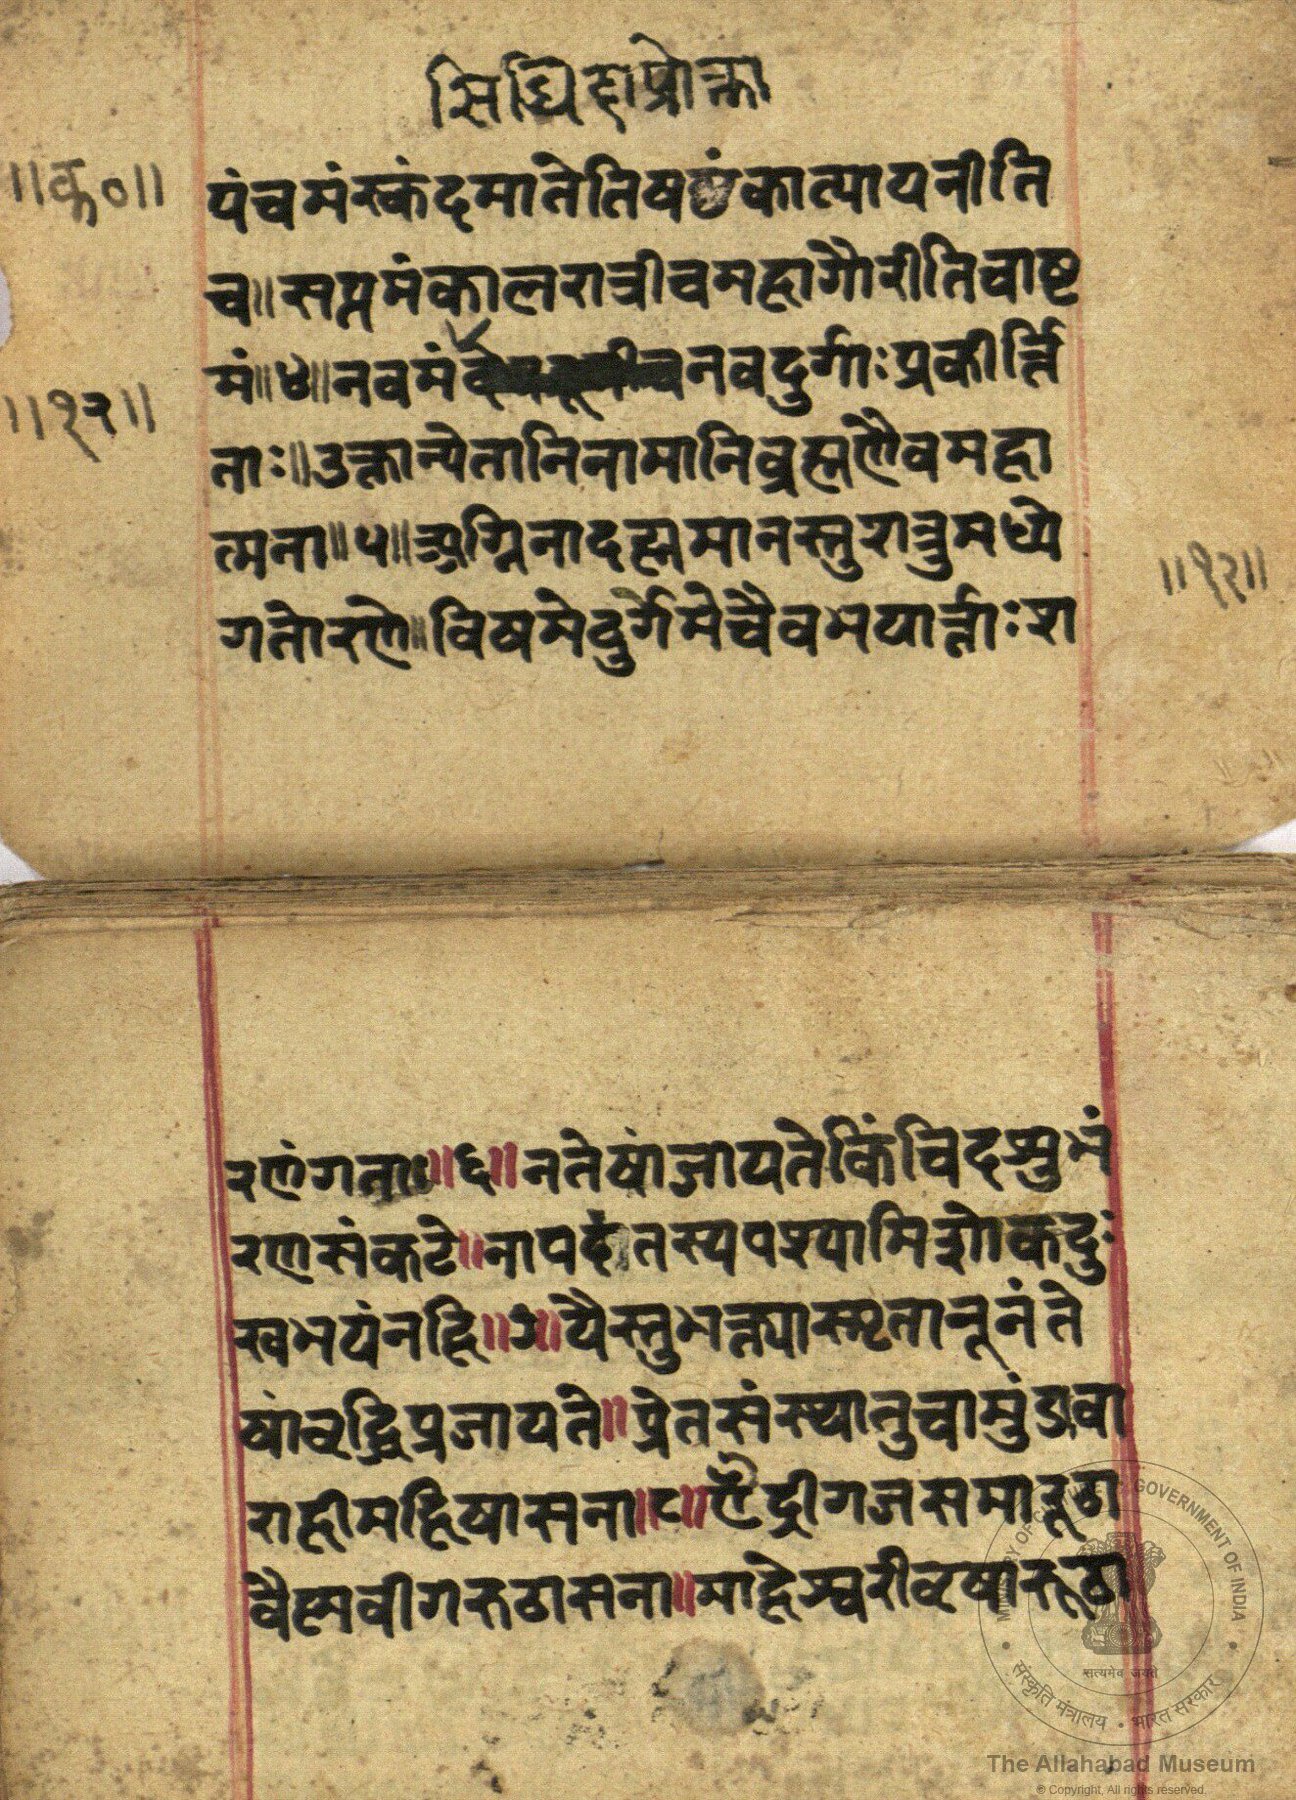 सिद्धिदाप्रोक्ता
॥क०॥
पंचमंस्कंदमातेतिषष्ठंकात्यायनीति
च॥सप्तमंकालरात्रीचमहागौरीतिचाष्ट
मं॥४॥नवमं नवदुर्गाःप्रकीर्त्ति
॥१२॥
ताः॥उक्तान्येतानिनामानिब्रह्मणैवमहा
त्मना॥५॥अग्निनादह्यमानस्तुशत्रुमध्ये
॥१२॥
गतोरणे॥विषमेदुर्गमेचैवभयार्त्ताःश
रणंगताः॥६॥नतेषांजायतेकिंचिदशुभं
रणसंकटे॥नापदंतस्यपश्यामिशोकदुः
खभयंनहि॥७॥यैस्तुभक्त्यास्मृतानूनंते
षांवृद्धिप्रजायते॥प्रेतसंस्थातुचामुंडावा
राहीमहिषासना॥८॥ऐंद्रीगजसमारूढा
वैष्णवीगरुडासना॥माहेश्वरीवृषारूढा
MINISTRY OF CULTURE GOVERNMENT OF INDIA
सत्यमेव जयते
संस्कृति मंत्रालय • भारत सरकार
The Allahabad Museum
© Copyright, All rights reserved.